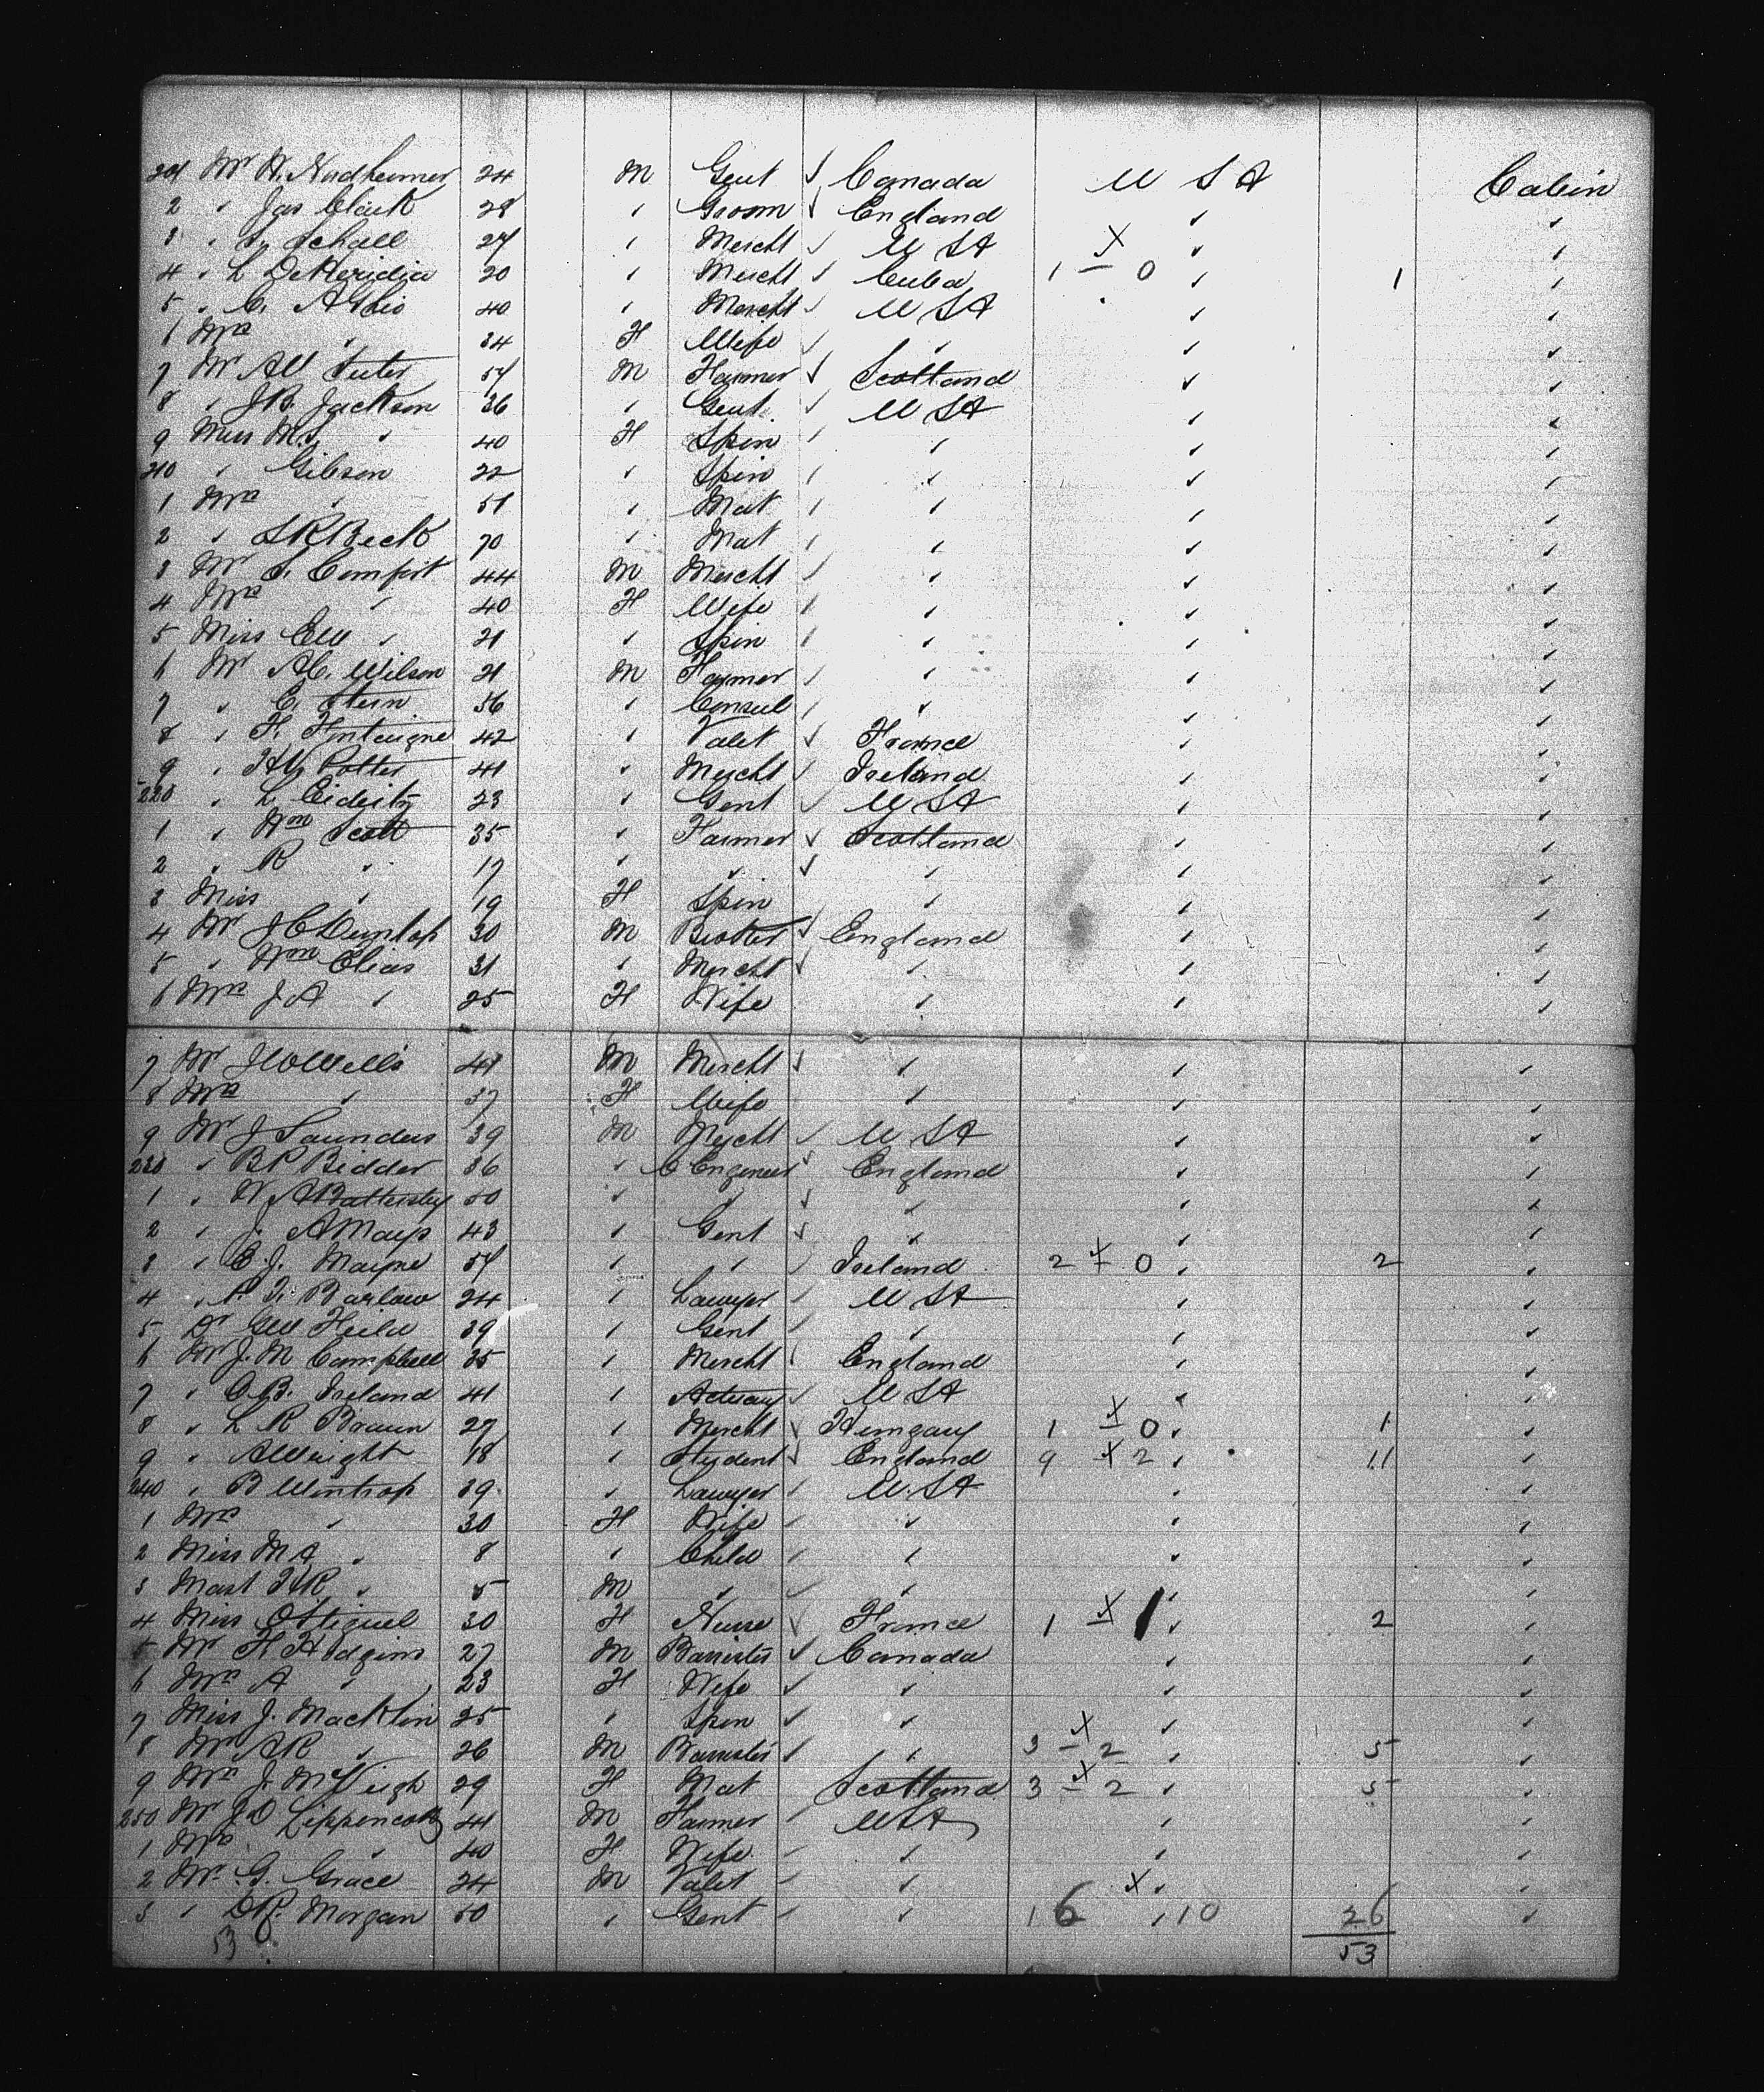 201 Mr N. Nordheimer 24 M Gent ✓ Canada U S A Cabin
2 " Jas Clark 28 " Groom ✓ England " "
3 " S. Schall 27 " Mercht ✓ U S A X " "
4 " L 20 " Mercht ✓ Cuba 1 — 0 " 1 "
5 " C. 40 " Mercht ✓ U S A " "
6 Mrs " 34 F Wife ✓ " " "
7 Mr AW 57 M Farmer ✓ Scotland " "
8 " J.B. Jackson 36 " Gent ✓ U S A " "
9 Miss M.S. " 40 F Spin " " " "
210 " Gibson 22 " Spin " " " "
1 Mrs " 51 " Mat " " " "
2 " S R Beck 70 " Mat " " " "
3 Mr S. Comfort 44 M Mercht ✓ " " "
4 Mrs " 40 F Wife " " " "
5 Miss EW " 21 " Spin " " " "
6 Mr A.C. Wilson 21 M Farmer " " " "
7 " C. Stern 36 " Consul " " " "
8 " F. 42 " Valet ✓ France " "
9 " Potter 41 " Mercht ✓ Ireland " "
220 " L. 23 " Gent ✓ U S A " "
1 " Wm Scott 35 " Farmer ✓ Scotland " "
2 " R " 17 " " ✓ " " "
3 Miss " 19 F Spin " " "
4 Mr J C Dunlop 30 M ✓ England " "
5 " Wm 31 " Mercht ✓ " " "
6 Mrs J A " 25 F Wife " " "
7 Mr Wells 41 M Mercht ✓ " " "
8 Mrs " 37 F Wife " " "
9 Mr J Saunders 39 M Mercht ✓ U S A " "
230 " B P Bidder 36 " C Engineer ✓ England " "
1 " W A Battersby 50 " " ✓ " " "
2 " J. A Mays 43 " Gent ✓ " " "
3 " E. J. Mayne 57 " " ✓ Ireland 2 X 0 " 2 "
4 " Barlow 24 " Lawyer " U S A " "
5 Dr GW Field 39 " Gent " " " "
6 Mr J. M Campbell 35 " Mercht " England " "
7 " O.B. Ireland 41 " Actuary ✓ U S A " "
8 " L R Braun 27 " Mercht ✓ Hungary 1 X 0 " 1 "
9 " A Wright 18 " Student ✓ England 9 X 2 " 11 "
240 " B Wintrop 39 " Lawyer " U. S A " "
1 Mrs " 30 F Wife " " " "
2 Miss M A " 8 " Child " " " "
3 Mast H R " 5 M " " " " "
4 Miss 30 F Nurse ✓ France 1 X 1 " 2 "
5 Mr F. Hodgins 27 M Barrister ✓ Canada " "
6 Mrs A " 23 F Wife ✓ " " "
7 Miss J. Macklin 25 " Spin ✓ " " "
8 Mr AR " 26 M Barrister ✓ " 3 X 2 " 5 "
9 Mrs J. McVeigh 29 F Mat Scotland 3 X 2 " 5 "
250 Mr J D Lippencott 41 M Farmer " U S A " "
1 Mrs " 40 F Wife " " " "
2 Mr. G. Grace 24 M Valet " " X " "
3 " Morgan 50 " Gent " " 16 " 10 26 "
53 53